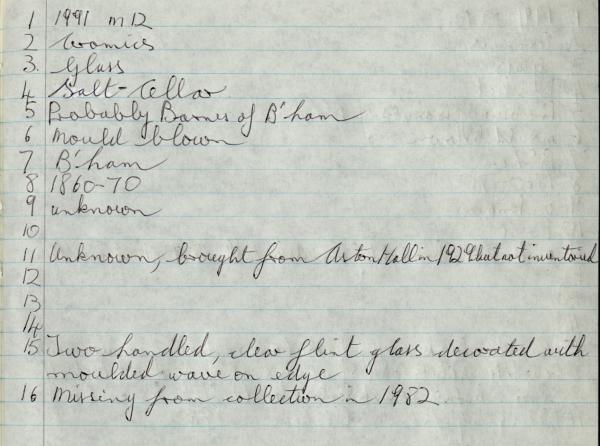 1 1991 M12
2 Ceramics
3. Glass
4 Salt-Cellar
5 Probably Barnes of B'ham
6 Mould blown
7 B'ham
8 1860-70
9 unknown
10
11 Unknown, brought from Aston Hall in 1929 but not inventoried
12
13
14
15 Two handled, clear flint glass decorated with
moulded wave on edge
16 Missing from collection in 1982.